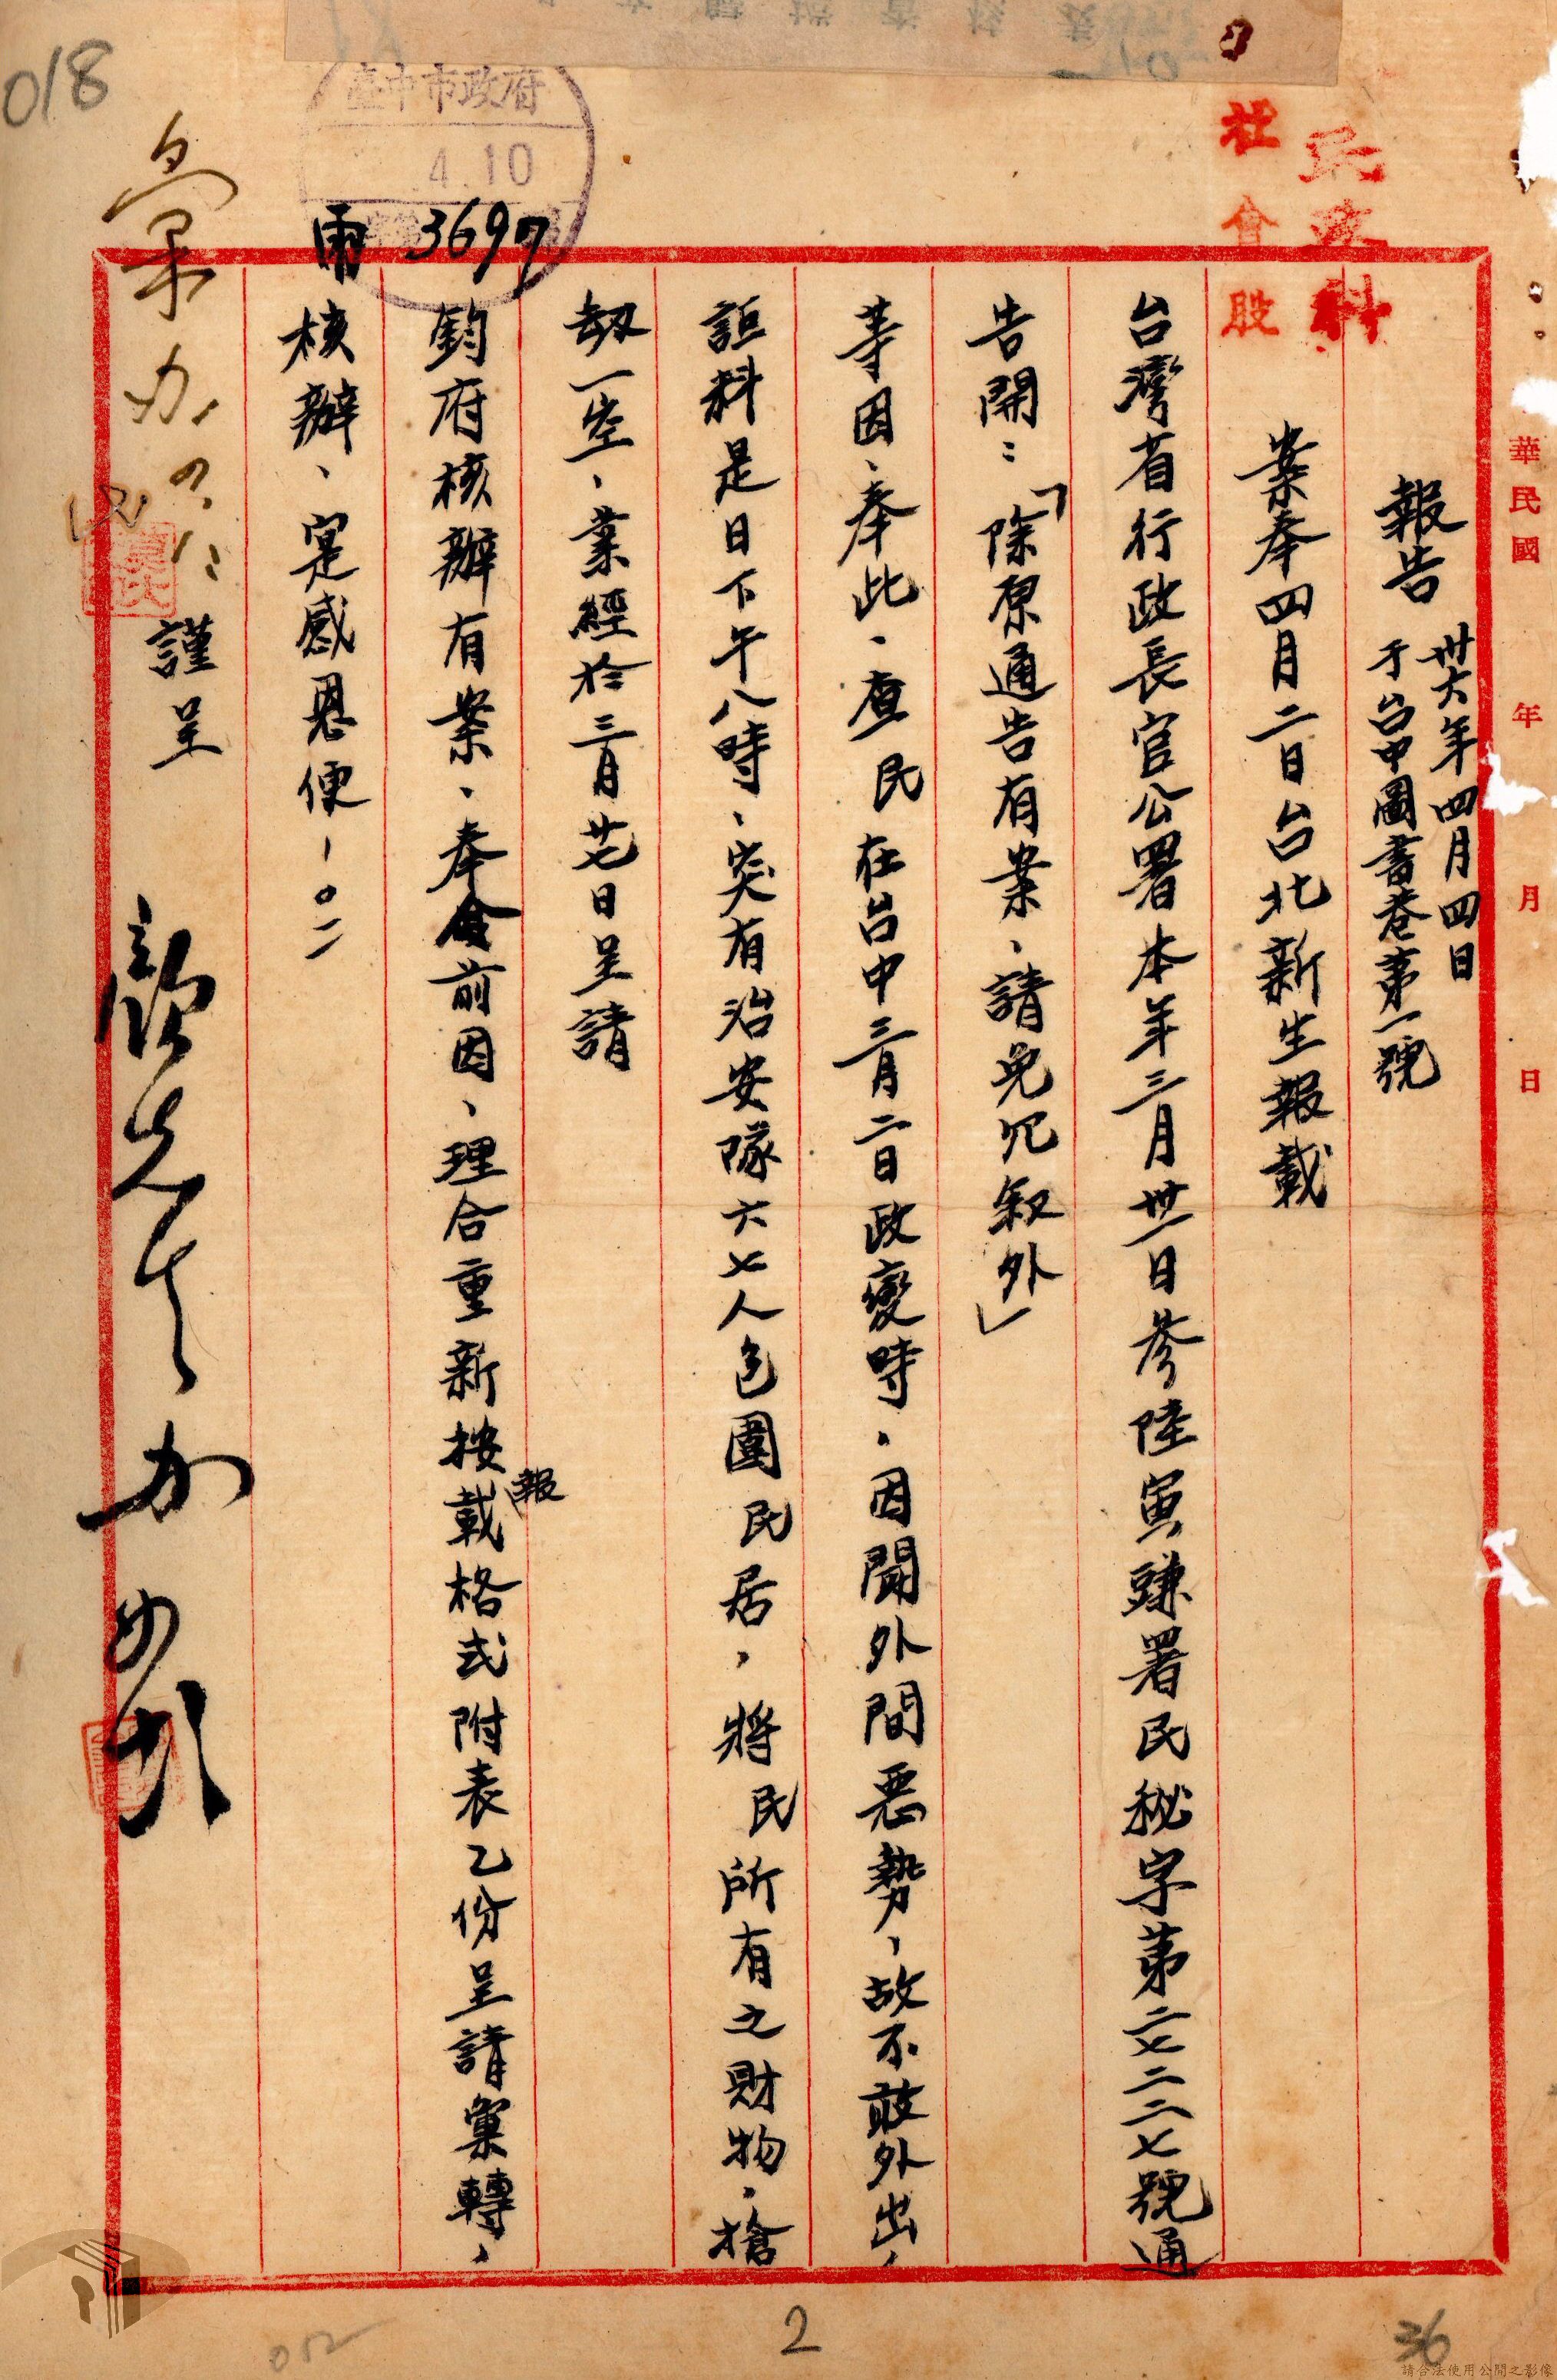 018
臺中市政府
4.10
雨 3697
民政科
社會股
華民國 年 月 日
報告 卅六年四月四日
于台中圖書巷第一號
案奉四月二日台北新生報載
台灣省行政長官公署本年三月卅一日參陸寅謙署民秘字第二七二二七號通
告開:「除原通告有案、請免冗叙外」
等因、奉此、查民在台中三月二日政變時、因聞外間惡勢、故不敢外出、
詎料是日下午八時、突有治安隊六七人包圍民居,將民所有之財物、搶
刧一空、業經於三月廿七日呈請
鈞府核辦有案、奉令前因、理合重新按報載格式附表乙份呈請彙轉、
核辦、寔感恩便
謹呈
彙办
2
36
052
請合法使用公開之影像